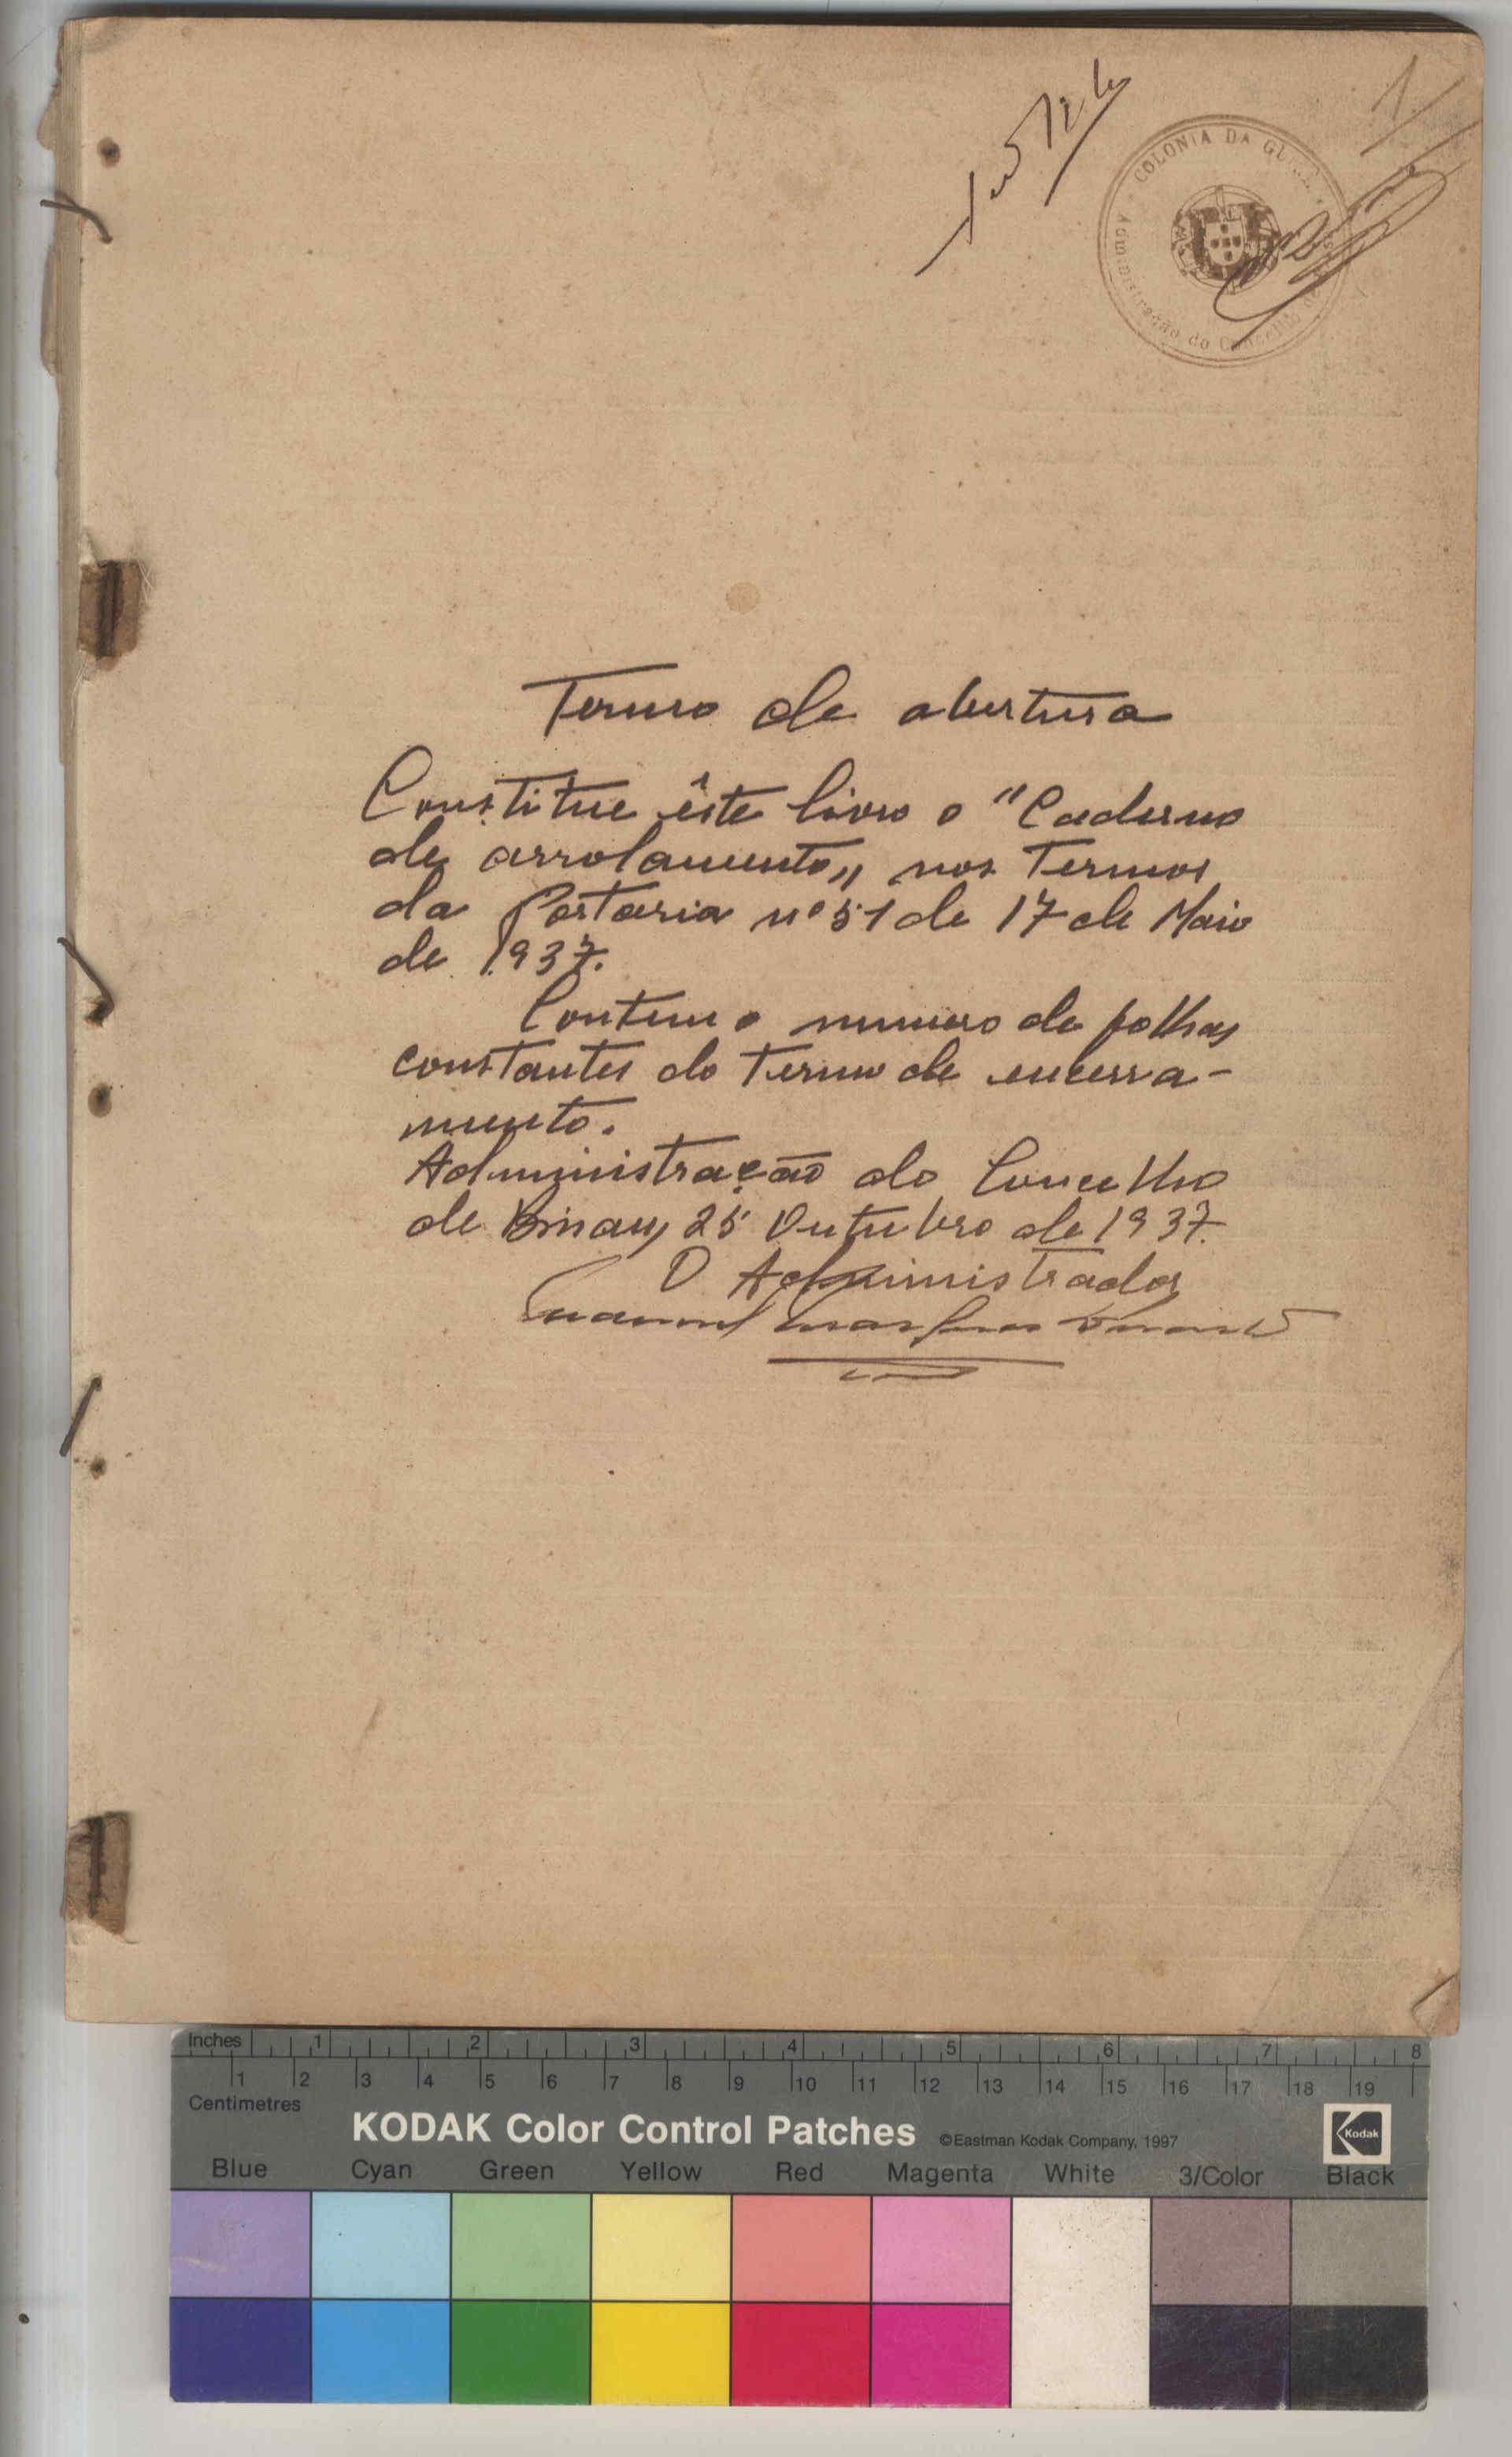 1
COLONIA DA GUINÉ
Administração do Concelho de
Termo de abertura
Constitue êste livro o "Caderno
de arrolamento„ nos Termos
da Portaria nº 51 de 17 de Maio
de 1937.
Contem o numero de folhas
constantes do Termo de encerra-
mento.
Administração do Concelho
de Bissau, 25 Outubro de 1937.
O Administrador
Inches 1 2 3 4 5 6 7 8
1 2 3 4 5 6 7 8 9 10 11 12 13 14 15 16 17 18 19
Centimetres
KODAK Color Control Patches ©Eastman Kodak Company, 1997 Kodak
Blue Cyan Green Yellow Red Magenta White 3/Color Black